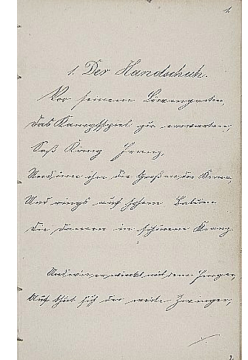 1. Der Handschuh.
Vor seinem Löwengarten,
Das Kampfspiel zu erwarten,
Saß König Franz,
Und um ihn die Großen der Krone,
Und rings auf hohem Balkone
Die Damen in schönem Kranz.
Und wie er winkt mit dem Finger,
Auf thut sich der weite Zwinger,